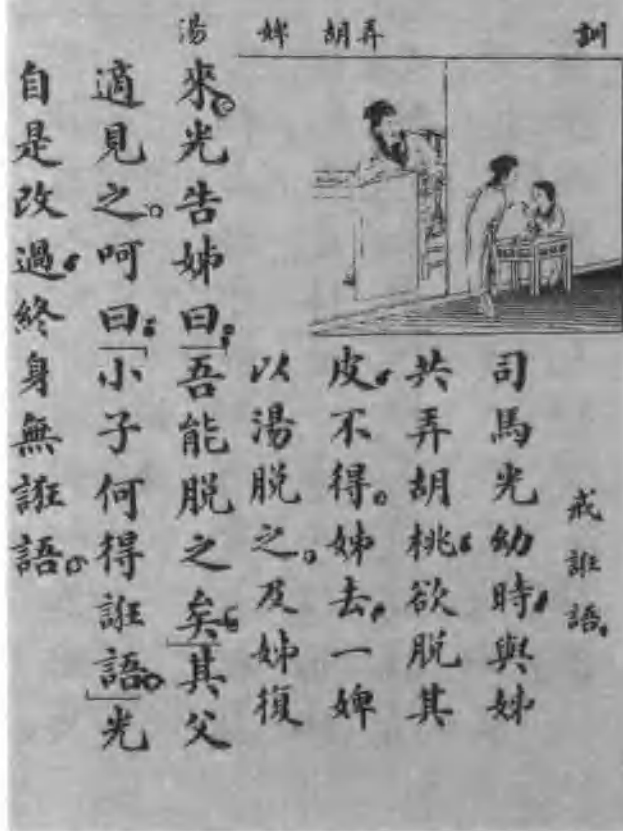 訓 弄胡 婢 湯
戒誑語。
司馬光幼時，與姊
共弄胡桃，欲脫其
皮，不得。姊去，一婢
以湯脫之。及姊復
來。光告姊曰：「吾能脫之矣。」其父
適見之。呵曰：「小子何得誑語。」光
自是改過，終身無誑語。